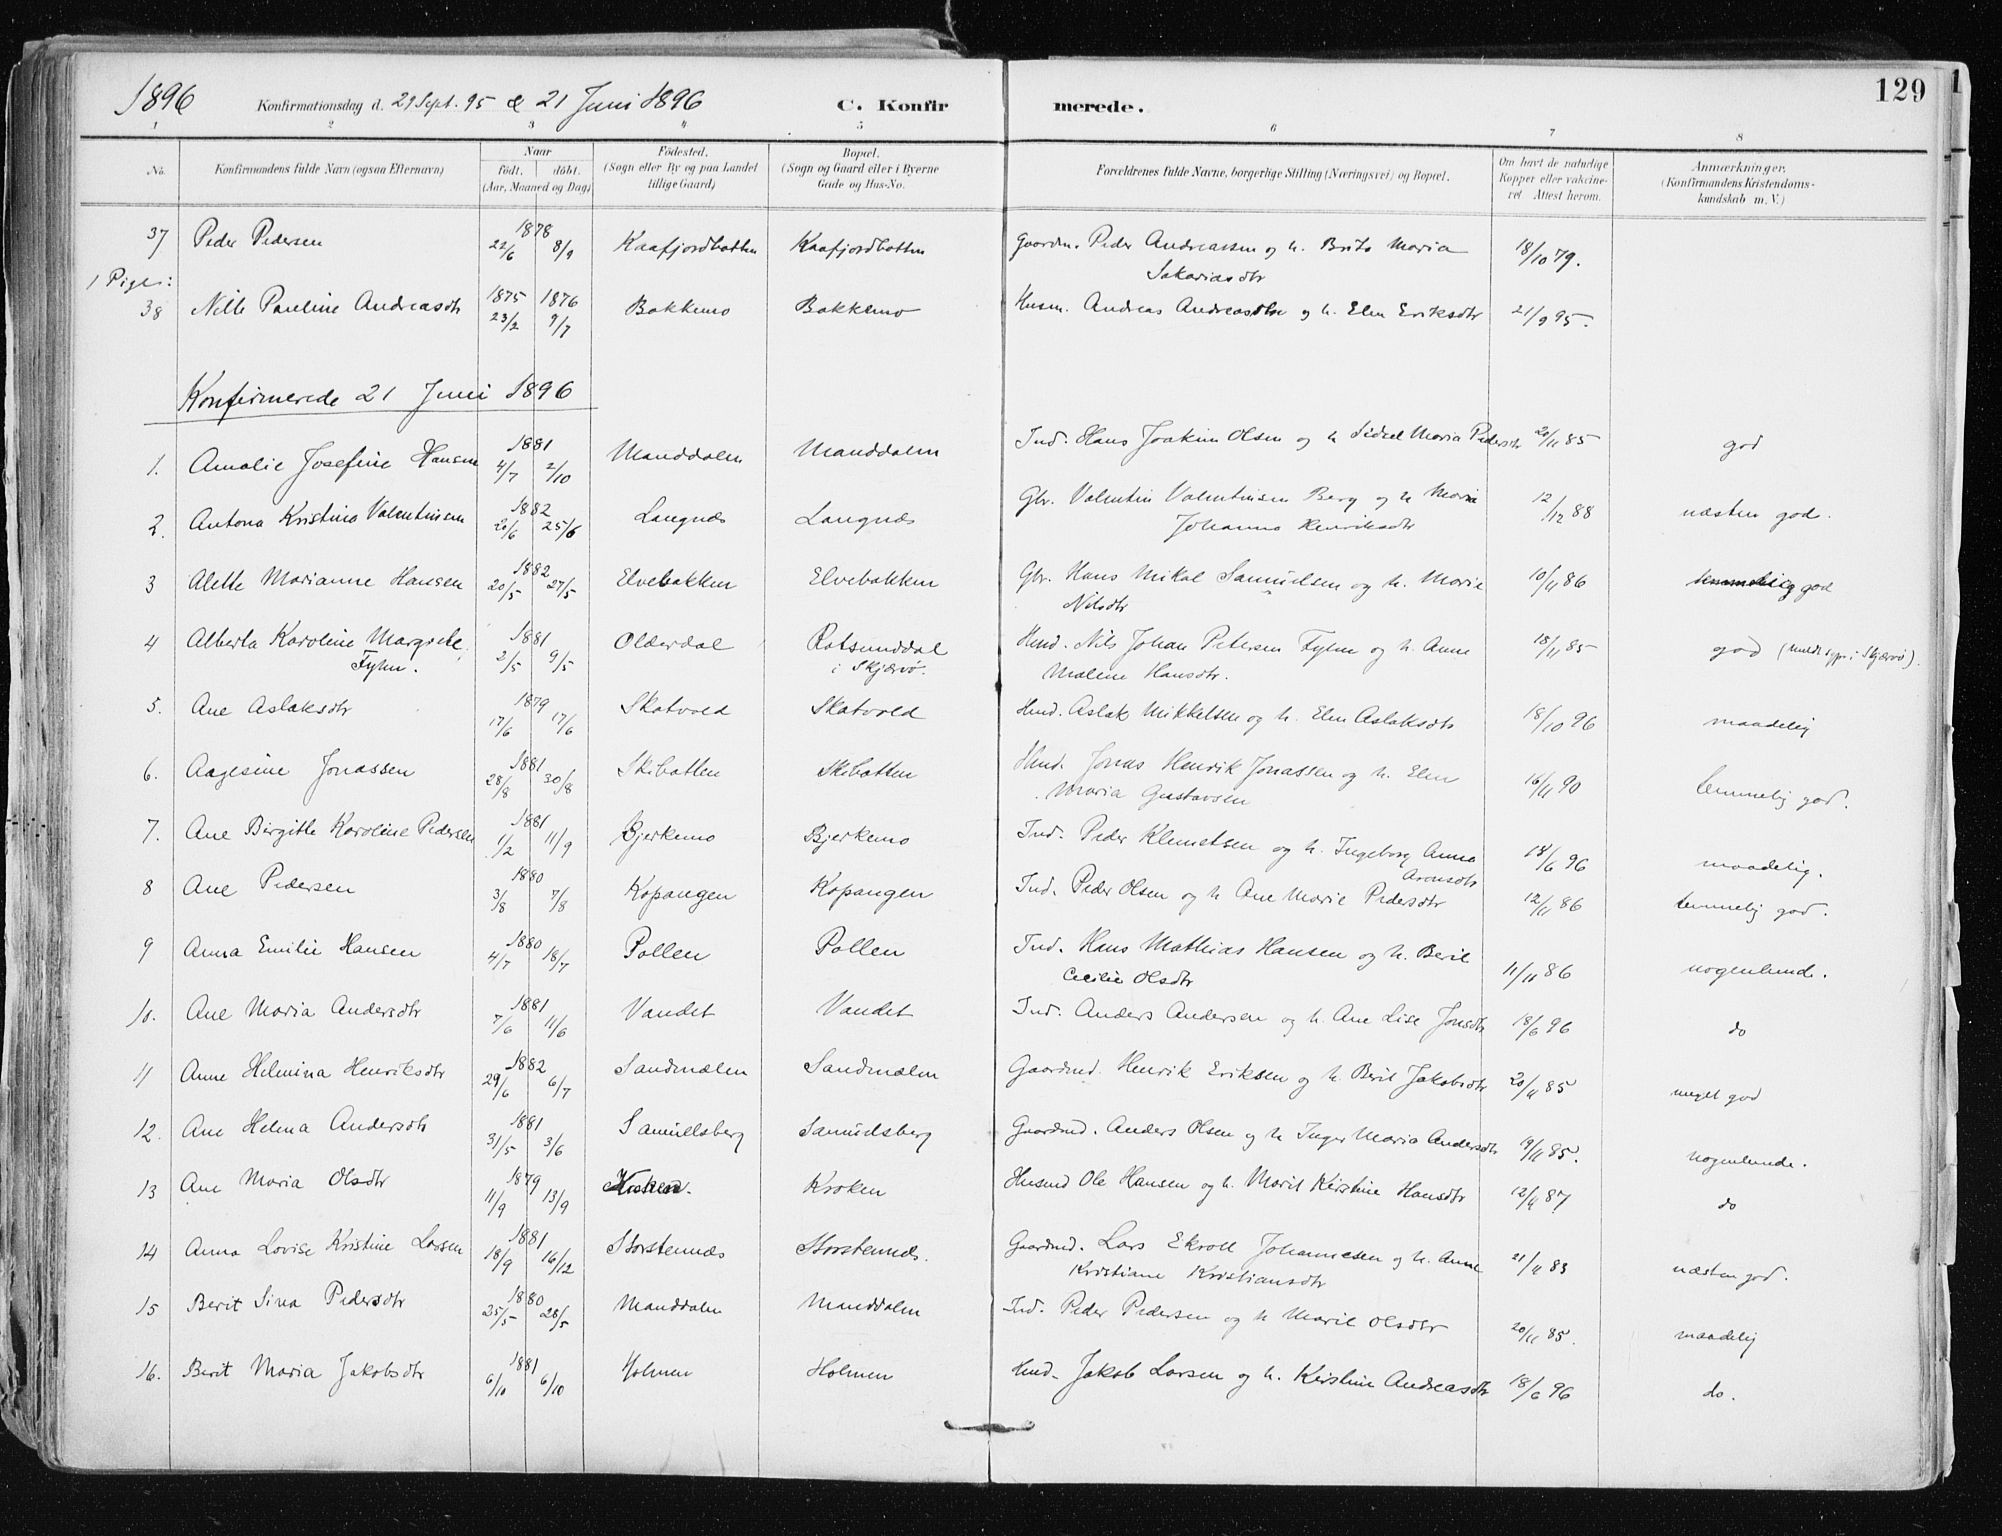 1896 Konfirmationsdag d. 29 Sept. 95 & 21 Juni 1896 C. Konfirmerede. 129
1 2 3 4 5 6 7 8
No. Konfirmandens fulde Navn (ogsaa Efternavn) Naar født. døbt. (Aar, Maaned og Dag) Fødested. (Sogn eller By og paa Landet tillige Gaard) Bopæl. (Sogn og Gaard eller i Byerne Gade og Hus-No. Forældrenes fulde Navne, borgerlige Stilling (Næringsvei) og Bopæl. Om havt de naturlige Kopper eller vakcineret. Attest herom. Anmærkninger. (Konfirmandens Kristendomskundskab m. V.)
37 Peder Pedersen 1878 22/6 8/9 Kaafjordbotten Kaafjordbotten Gaardm. Peder Andreassen og h. Brita Maria Sakariasdtr 18/10 79.
1 Pige:
38 Nille Pauline Andreasdtr 1875 23/2 1876 9/7 Bakkemo Bakkemo Husm. Andreas Andreas og h. Elen Eriksdtr 21/9 95.
Konfirmerede 21 Juni 1896
1. Amalie Josefine Hansen 1881 4/7 2/10 Manddalen Manddalen Ind. Hans Joakim Olsen og h Sidsel Maria Pedersdtr 20/11 85 god
2. Antona Kristina Valentinsen 1882 20/6 25/6 Langnæs Langnæs Gbr. Valentin Valentinsen Berg og h Maria Johanna Henriksdtr 12/12 88 næsten god.
3 Alette Marianne Hansen 1882 20/5 27/5 Elvebakken Elvebakken Gbr. Hans Mikal Samuelsen og h. Marie Nilsdtr 10/11 86 temmelig god
4 Alberta Karoline Margrete Fyhn. 1881 2/5 9/5 Olderdal Rotsunddal i Skjærvø. Husmd. Nils Johan Petersen Fyhn og h. Anne Malene Hansdtr. 18/11 85 god (i Skjærvø).
5. Ane Aslaksdtr 1879 17/6 17/6 Skatvold Skatvold Husmd. Aslak Mikkelsen og h. Elen Aslaksdtr 18/10 96 maadelig
6. Aagesine Jonassen 1881 28/8 30/8 Skibotten Skibotten Husmd. Jonas Henrik Jonassen og h. Elen Maria Gustavsen 16/11 90 temmelig god.
7. Ane Birgitte Karoline Pedersen 1881 1/2 11/9 Bjerkemo Bjerkemo Ind. Peder Klemetsen og h. Ingeborg Anna Aronsdtr 18/6 96 maadelig.
8 Ane Pedersen 1880 3/8 7/8 Kopangen Kopangen Ind. Peder Olsen og h Ane Marie Pedersdtr 12/11 86 temmelig god.
9 Anna Emilie Hansen 1880 4/7 18/7 Pollen Pollen Ind. Hans Mathias Hansen og h. Berit Cecilie Olsdtr 11/11 86 nogenlunde.
10. Ane Maria Andersdtr 1881 7/6 11/6 Vandet Vandet Ind. Anders Andersen og h. Ane Lise Jonsdtr 18/6 96 do
11 Anne Helmina Henriksdtr 1882 29/6 6/7 Sandmælen Sandmælen Gaardmd. Henrik Eriksen og h. Berit Jakobsdtr 20/11 85 meget god
12. Ane Helena Andersdtr 1881 31/5 3/6 Samuelsberg Samuelsberg Gaardmd. Anders Olsen og h Inger Maria Andersdtr 19/11 85. nogenlunde.
13 Ane Maria Olsdtr 1879 11/9 13/9 Kroken. Kroken Husmd Ole Hansen og h. Marit Kirstine Hansdtr 12/11 87 do
14 Anna Lovise Kristine Larsen 1881 18/9 16/12 Storstennæs Storstennæs. Gaardmd. Lars Ekroll Johannesen og h. Anne Kristiane Kristiansdtr 21/11 83 næsten god.
15 Berit Sina Pedersdtr 1880 25/5 28/5 Manddalen Manddalen Ind. Peder Pedersen og h Marit Olsdtr 20/11 85. maadelig
16. Berit Maria Jakobsdtr 1881 6/10 6/10 Holmen Holmen Husmd. Jakob Larsen og h. Kirstine Andreasdtr 18/6 96 do.